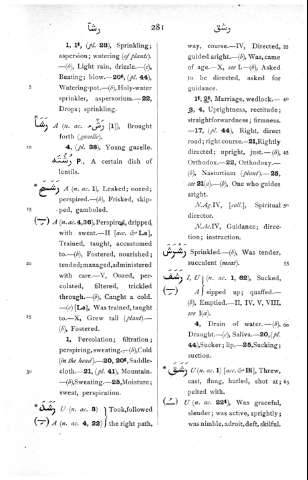 رشأ
281
رشق
1, 1⁴, (pl. 28), Sprinkling;
aspersion; watering (of plants).
—(b), Light rain, drizzle.—(c),
Beating; blow.—20⁴, (pl. 44),
5
Watering-pot.—(b), Holy-water
sprinkler, aspersorium.—22,
Drops; sprinkling.
رشأ A (n. ac. رشء [1]), Brought
forth (gazelle).
10
4, (pl. 38), Young gazelle.
رشته P. A certain dish of
lentils.
رشح A (n. ac. 1), Leaked; oozed;
perspired.—(b), Frisked, skip-
15
ped, gamboled.
A (n. ac. 4,36), Perspired, dripped
with sweat.—II [acc. & La],
Trained, taught, accustomed
to.—(b), Fostered, nourished;
20
tended; managed, administered
with care.—V, Oozed, per-
colated, filtered, trickled
through.—(b), Caught a cold.
—(c) [La], Was trained, taught
25
to.—X, Grew tall (plant).—
(b), Fostered.
1, Percolation; filtration;
perspiring, sweating.—(b), Cold
(in the head).—20, 20⁴, Saddle-
30
cloth.—21, (pl. 41), Mountain.
—(b), Sweating.—25, Moisture;
sweat, perspiration.
رشد U (n. ac. 3) Took, followed
A (n. ac. 4, 22) the right path,
way, course.—IV, Directed,
35
guided aright.—(b), Was, came
of age.—X, see I.—(b), Asked
to be directed, asked for
guidance.
1⁴, 2⁴, Marriage, wedlock.—
40
3, 4, Uprightness, rectitude;
straightforwardness; firmness.
—17, (pl. 44), Right, direct
road; right course.—21, Rightly
directed; upright, just.—(b),
45
Orthodox.—22, Orthodoxy.—
(b), Nasturtium (plant).—25,
see 21(a).—(b), One who guides
aright.
N.Ag.IV, [coll.], Spiritual
50
director.
N.Ac.IV, Guidance; direc-
tion; instruction.
رشرش Sprinkled.—(b), Was tender,
succulent (meat).
55
رشف I, U (n. ac. 1, 62), Sucked,
A sipped up; quaffed.—
(b), Emptied.—II, IV, V, VIII,
see I(a).
4, Drain of water.—(b),
60
Draught.—(c), Saliva.—20, (pl.
44), Sucker; lip.—25, Sucking;
suction.
رشق U (n. ac. 1) [acc. & Bi], Threw,
cast, flung, hurled, shot at;
65
pelted with.
U (n. ac. 22⁴), Was graceful,
slender; was active, sprightly;
was nimble, adroit, deft, skilful.